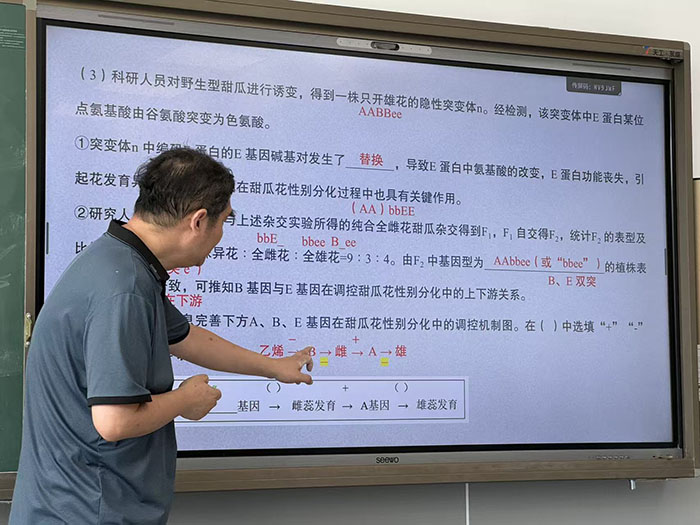 天工·教盘
传屏码: NV9JWF
(3)科研人员对野生型甜瓜进行诱变，得到一株只开雄花的隐性突变体n。经检测，该突变体中E蛋白某位
AABBee
点氨基酸由谷氨酸突变为色氨酸。
①突变体n 中编码 蛋白的E 基因碱基对发生了 替换 ，导致E 蛋白中氨基酸的改变，E 蛋白功能丧失，引
起花发育异 在甜瓜花性别分化过程中也具有关键作用。
(AA)bbEE
②研究人 与上述杂交实验所得的纯合全雌花甜瓜杂交得到F₁，F₁ 自交得F₂，统计F₂ 的表型及
bbE_ bbee B_ee
比 异花：全雌花：全雄花=9：3：4。由F₂ 中基因型为 AAbbee(或“bbee”) 的植株表
B、E 双突
致，可推知B 基因与E 基因在调控甜瓜花性别分化中的上下游关系。
在下游
息完善下方A、B、E 基因在甜瓜花性别分化中的调控机制图。在( )中选填“+”“-”
− +
乙烯 → B → 雌 → A → 雄
− −
( ) + ( )
基因 → 雌蕊发育 → A基因 → 雄蕊发育
seewo